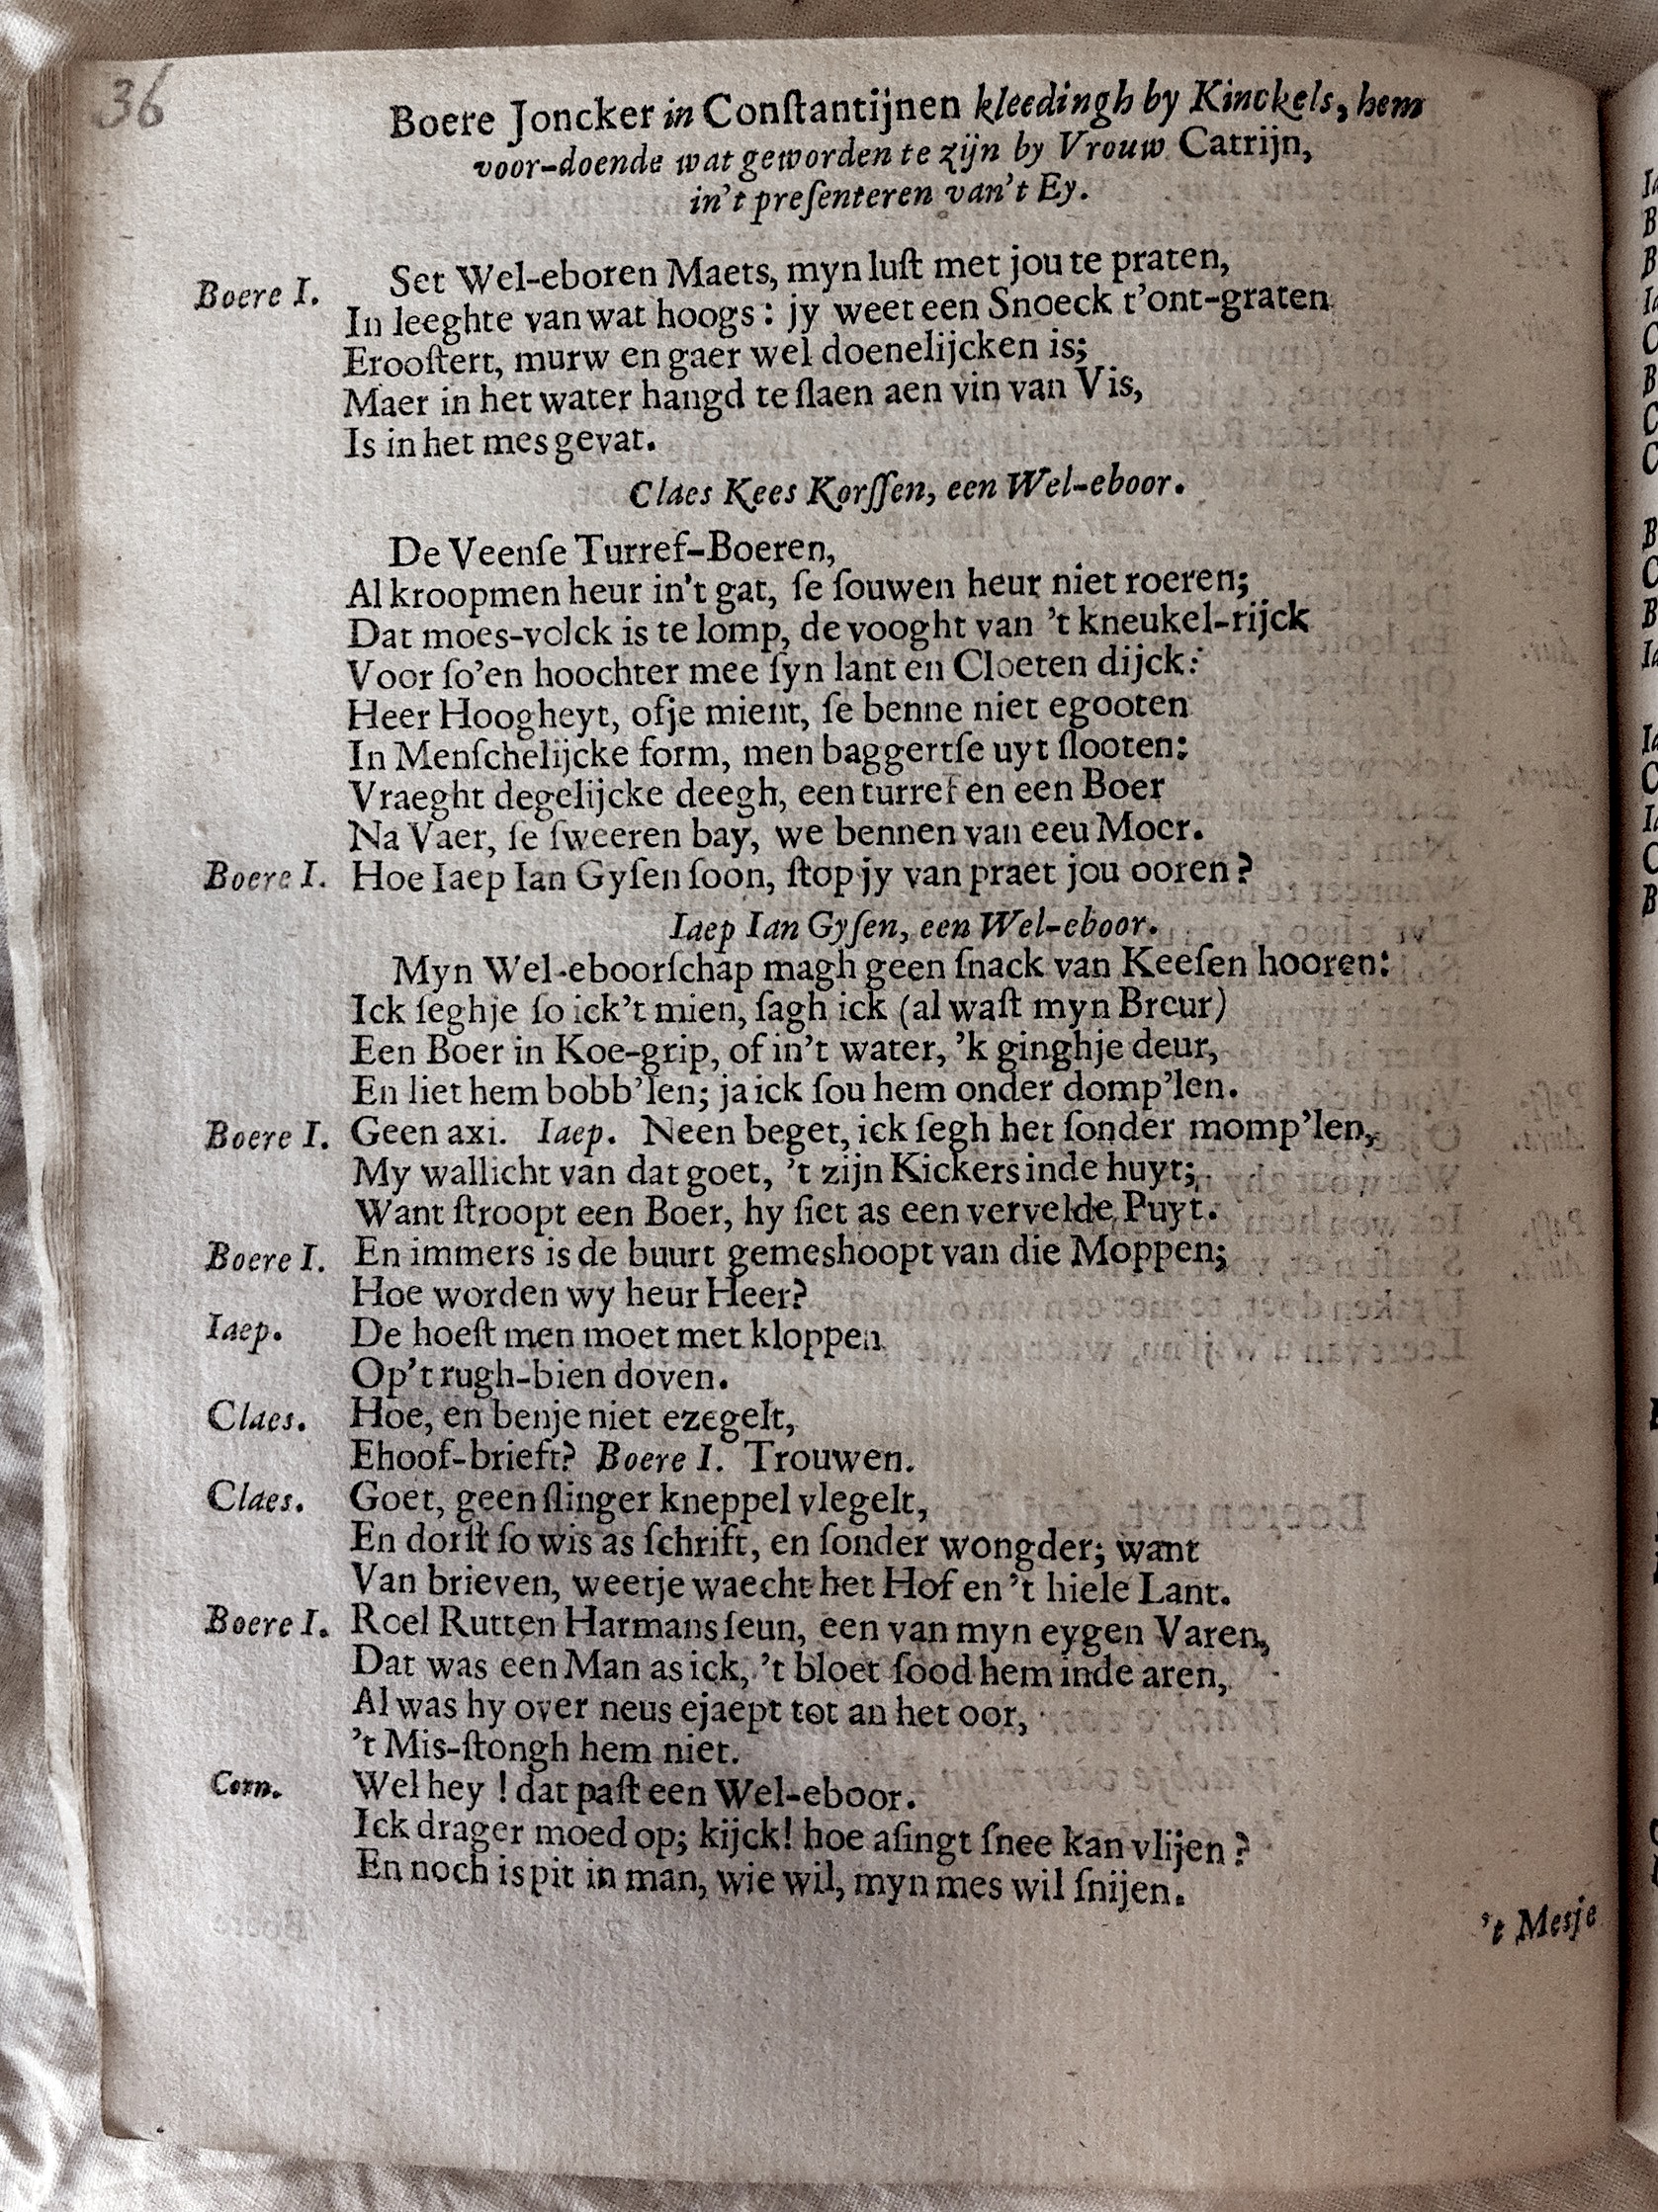 36
Boere Joncker in Conſtantijnen kleedingh by Kinckels, hem
voor-doende wat geworden te zijn by Vrouw Catrijn,
in't preſenteren van't Ey.
Boere I. Set Wel-eboren Maets, myn luſt met jou te praten,
In leeghte van wat hoogs: jy weet een Snoeck t'ont-graten
Erooſtert, murw en gaer wel doenelijcken is;
Maer in het water hangd te ſlaen aen vin van Vis,
Is in het mes gevat.
Claes Kees Korſſen, een Wel-eboor.
De Veenſe Turref-Boeren,
Al kroopmen heur in't gat, ſe ſouwen heur niet roeren;
Dat moes-volck is te lomp, de vooght van 't kneukel-rijck
Voor ſo'en hoochter mee ſyn lant en Cloeten dijck:
Heer Hoogheyt, ofje mient, ſe benne niet egooten
In Menſchelijcke form, men baggertſe uyt ſlooten:
Vraeght degelijcke deegh, een turref en een Boer
Na Vaer, ſe ſweeren bay, we bennen van eeu Moer.
Boere I. Hoe Iaep Ian Gyſen ſoon, ſtop jy van praet jou ooren?
Iaep Ian Gyſen, een Wel-eboor.
Myn Wel-eboorſchap magh geen ſnack van Keeſen hooren:
Ick ſeghje ſo ick't mien, ſagh ick (al waſt myn Breur)
Een Boer in Koe-grip, of in't water, 'k ginghje deur,
En liet hem bobb'len; ja ick ſou hem onder domp'len.
Boere I. Geen axi. Iaep. Neen beget, ick ſegh het ſonder momp'len,
My wallicht van dat goet, 't zijn Kickers inde huyt;
Want ſtroopt een Boer, hy ſiet as een vervelde Puyt.
Boere I. En immers is de buurt gemeshoopt van die Moppen;
Hoe worden wy heur Heer?
Iaep. De hoeſt men moet met kloppen
Op't rugh-bien doven.
Claes. Hoe, en benje niet ezegelt,
Ehoof-brieft? Boere I. Trouwen.
Claes. Goet, geen ſlinger kneppel vlegelt,
En dorſt ſo wis as ſchrift, en ſonder wongder; want
Van brieven, weetje waecht het Hof en 't hiele Lant.
Boere I. Roel Rutten Harmans ſeun, een van myn eygen Varen,
Dat was een Man as ick, 't bloet ſood hem inde aren,
Al was hy over neus ejaept tot an het oor,
't Mis-ſtongh hem niet.
Corn. Wel hey ! dat paſt een Wel-eboor.
Ick drager moed op; kijck! hoe aſingt ſnee kan vlijen?
En noch is pit in man, wie wil, myn mes wil ſnijen.
't Mesje